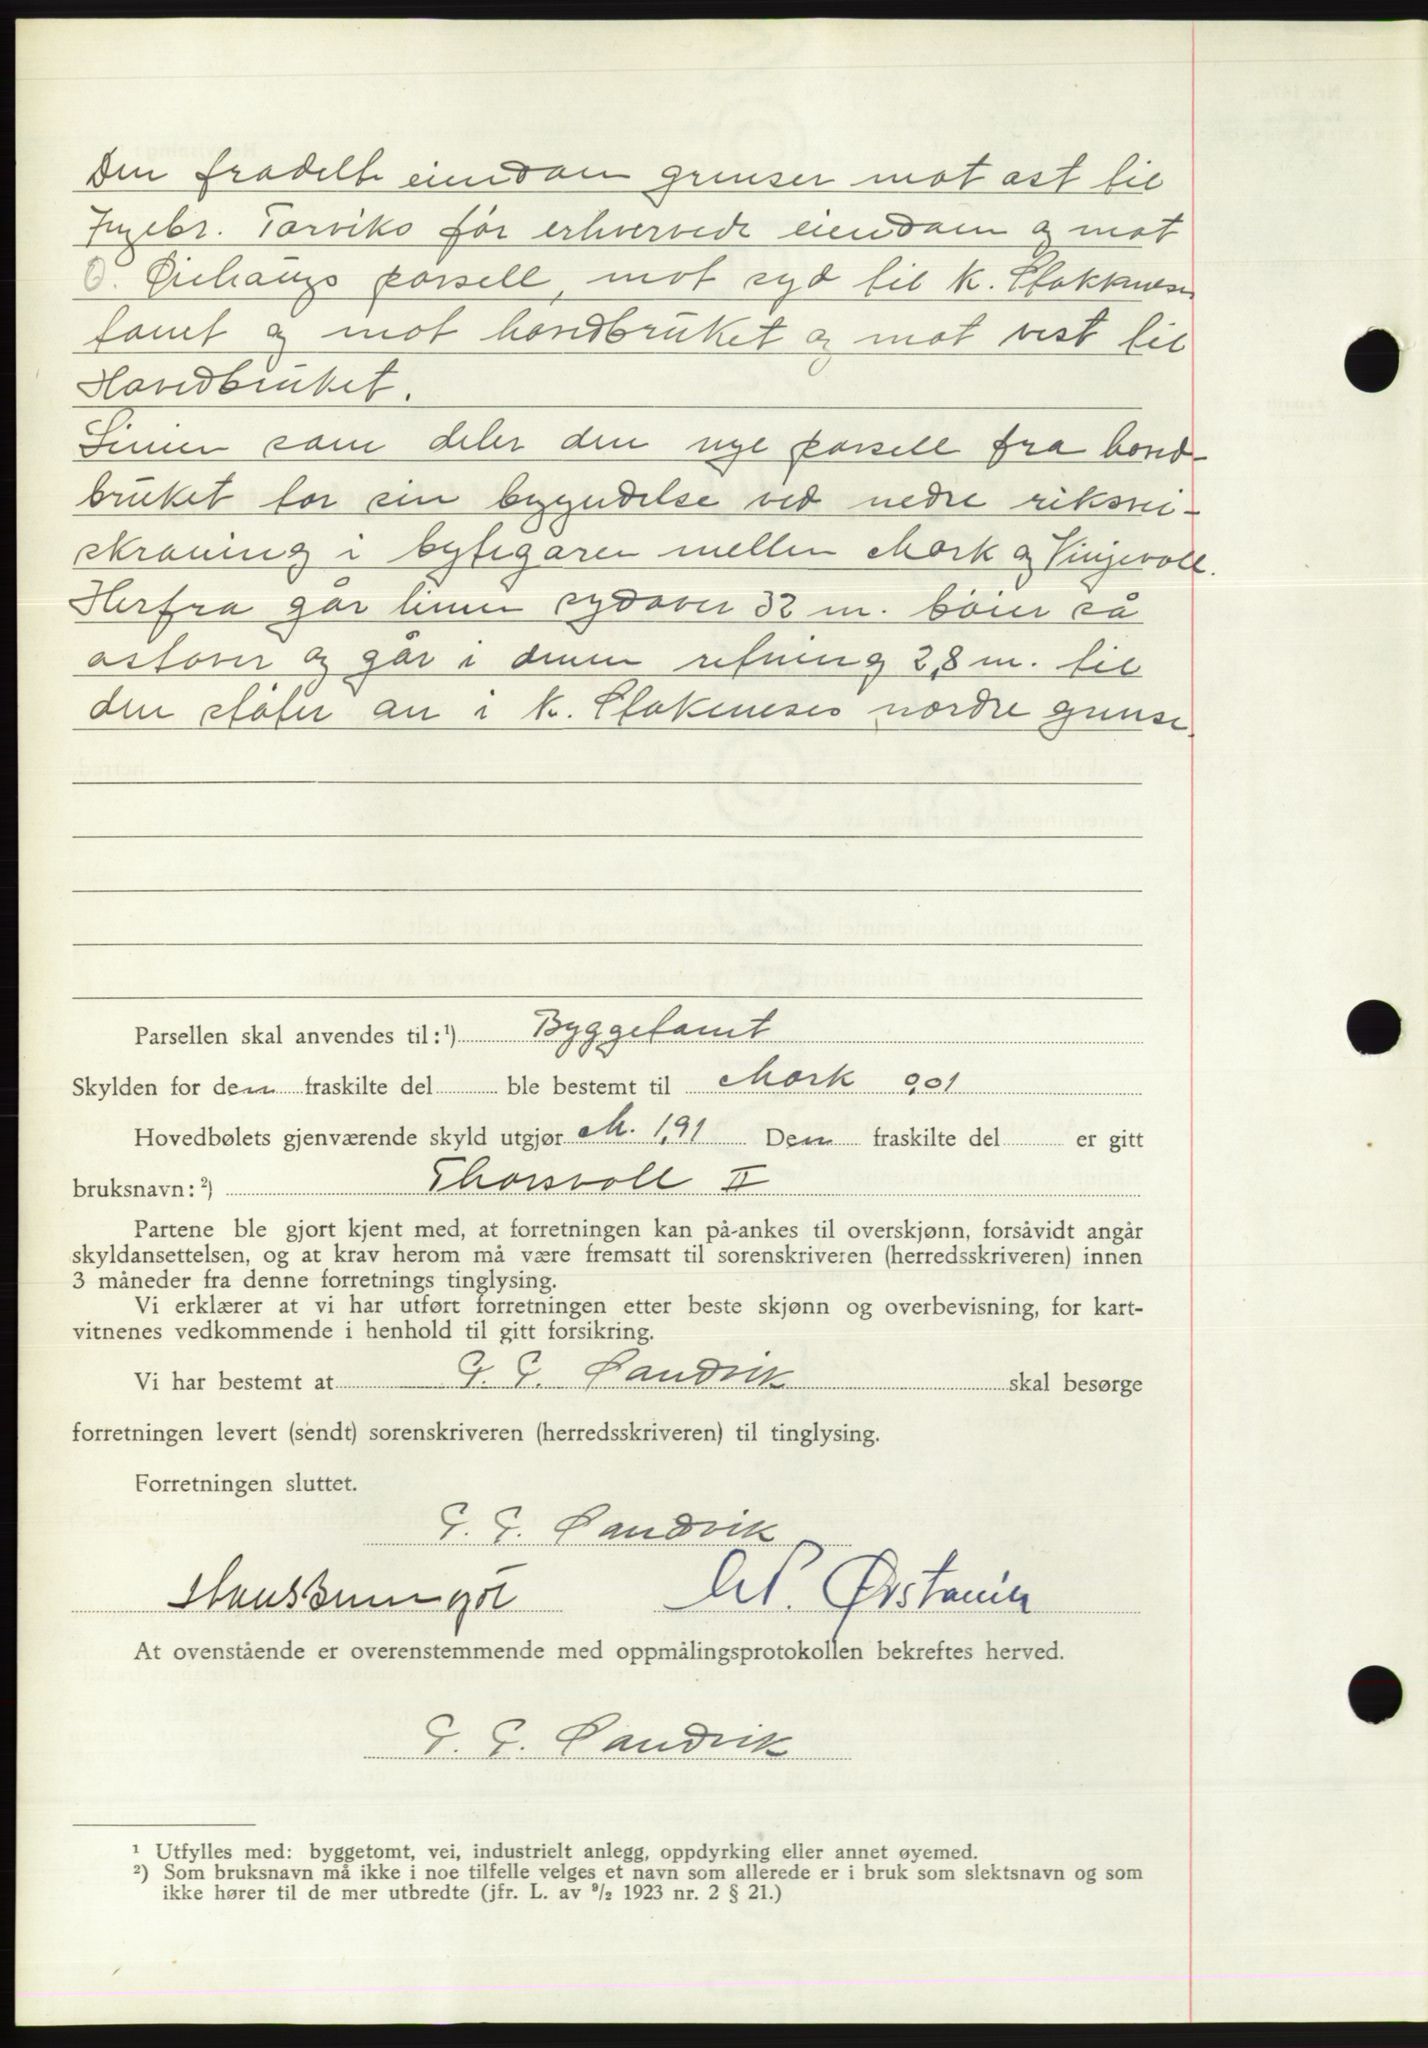 Den fradelte eiendom grenser mot øst til
Ingebr. Torviks før erhvervede eiendom og mot
O. Øiehaugs parsell, mot syd til K. Stokkneses
tomt og mot hovedbruket og mot vest til
Hovedbruket.
Linien som deler den nye parsell fra hoved-
bruket tar sin begyndelse ved nedre riksvei-
skråning i bytegaren mellem Mork og Vinjevoll.
Herfra går linien sydover 32 m. bøier så
østover og går i denne retning 2,8 m. til
den støter an i K. Stokkneses nordre grense.
Parsellen skal anvendes til:¹) Byggetomt
Skylden for den fraskilte del ble bestemt til Mork 0,01
Hovedbølets gjenværende skyld utgjør M. 1,91 Den fraskilte del er gitt
bruksnavn:²) Thorsvoll II
Partene ble gjort kjent med, at forretningen kan på-ankes til overskjønn, forsåvidt angår
skyldansettelsen, og at krav herom må være fremsatt til sorenskriveren (herredsskriveren) innen
3 måneder fra denne forretnings tinglysing.
Vi erklærer at vi har utført forretningen etter beste skjønn og overbevisning, for kart-
vitnenes vedkommende i henhold til gitt forsikring.
Vi har bestemt at G. G. Sandvik skal besørge
forretningen levert (sendt) sorenskriveren (herredsskriveren) til tinglysing.
Forretningen sluttet.
G. G. Sandvik
Hans Ørstavik
At ovenstående er overenstemmende med oppmålingsprotokollen bekreftes herved.
G. G. Sandvik
¹ Utfylles med: byggetomt, vei, industrielt anlegg, oppdyrking eller annet øyemed.
²) Som bruksnavn må ikke i noe tilfelle velges et navn som allerede er i bruk som slektsnavn og som
ikke hører til de mer utbredte (jfr. L. av ⁹/₂ 1923 nr. 2 § 21.)